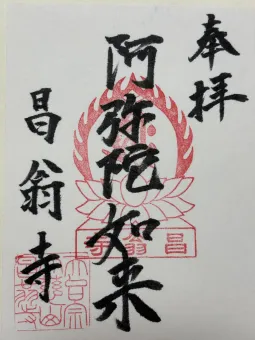 奉拝
阿弥陀如来
昌翁寺
寺翁昌